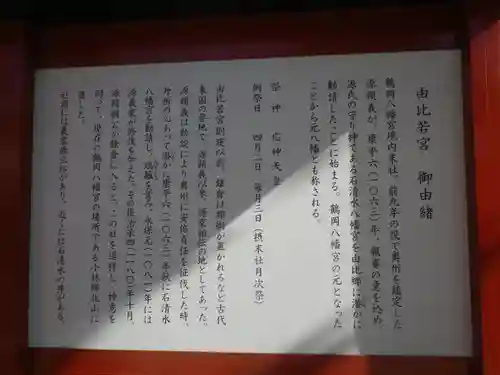 由比若宮 御由緒
鶴岡八幡宮境内末社。前九年の役で奥州を鎮定した
源頼義が、康平六（一〇六三）年、報賽の意を込め、
源氏の守り神である石清水八幡宮を由比郷に潜かに
勧請したことに始まる。鶴岡八幡宮の元となった
ことから元八幡とも称される。
祭神 応神天皇
例祭日 四月二日 毎月三日（摂末社月次祭）
由比若宮創建以前、鎌倉は郡衙が置かれるなど古代
東国の要地で、源頼義以来、源家相伝の地としてあった。
源頼義は勅定により奥州に安倍貞任を征伐した時、
丹祈の心あって潜かに康平六（一〇六三）年秋に石清水
八幡宮を勧請し、瑞籬を営み、永保元（一〇八一）年には
源義家が修復を加えた。その後治承四（一一八〇）年十月、
源頼朝らが鎌倉に入ると、この社を遥拝し、神意を
伺って、現在の鶴岡八幡宮の場所である小林郷北山に
遷した。
社前には義家旗立松があり、近くには石清水の井がある。